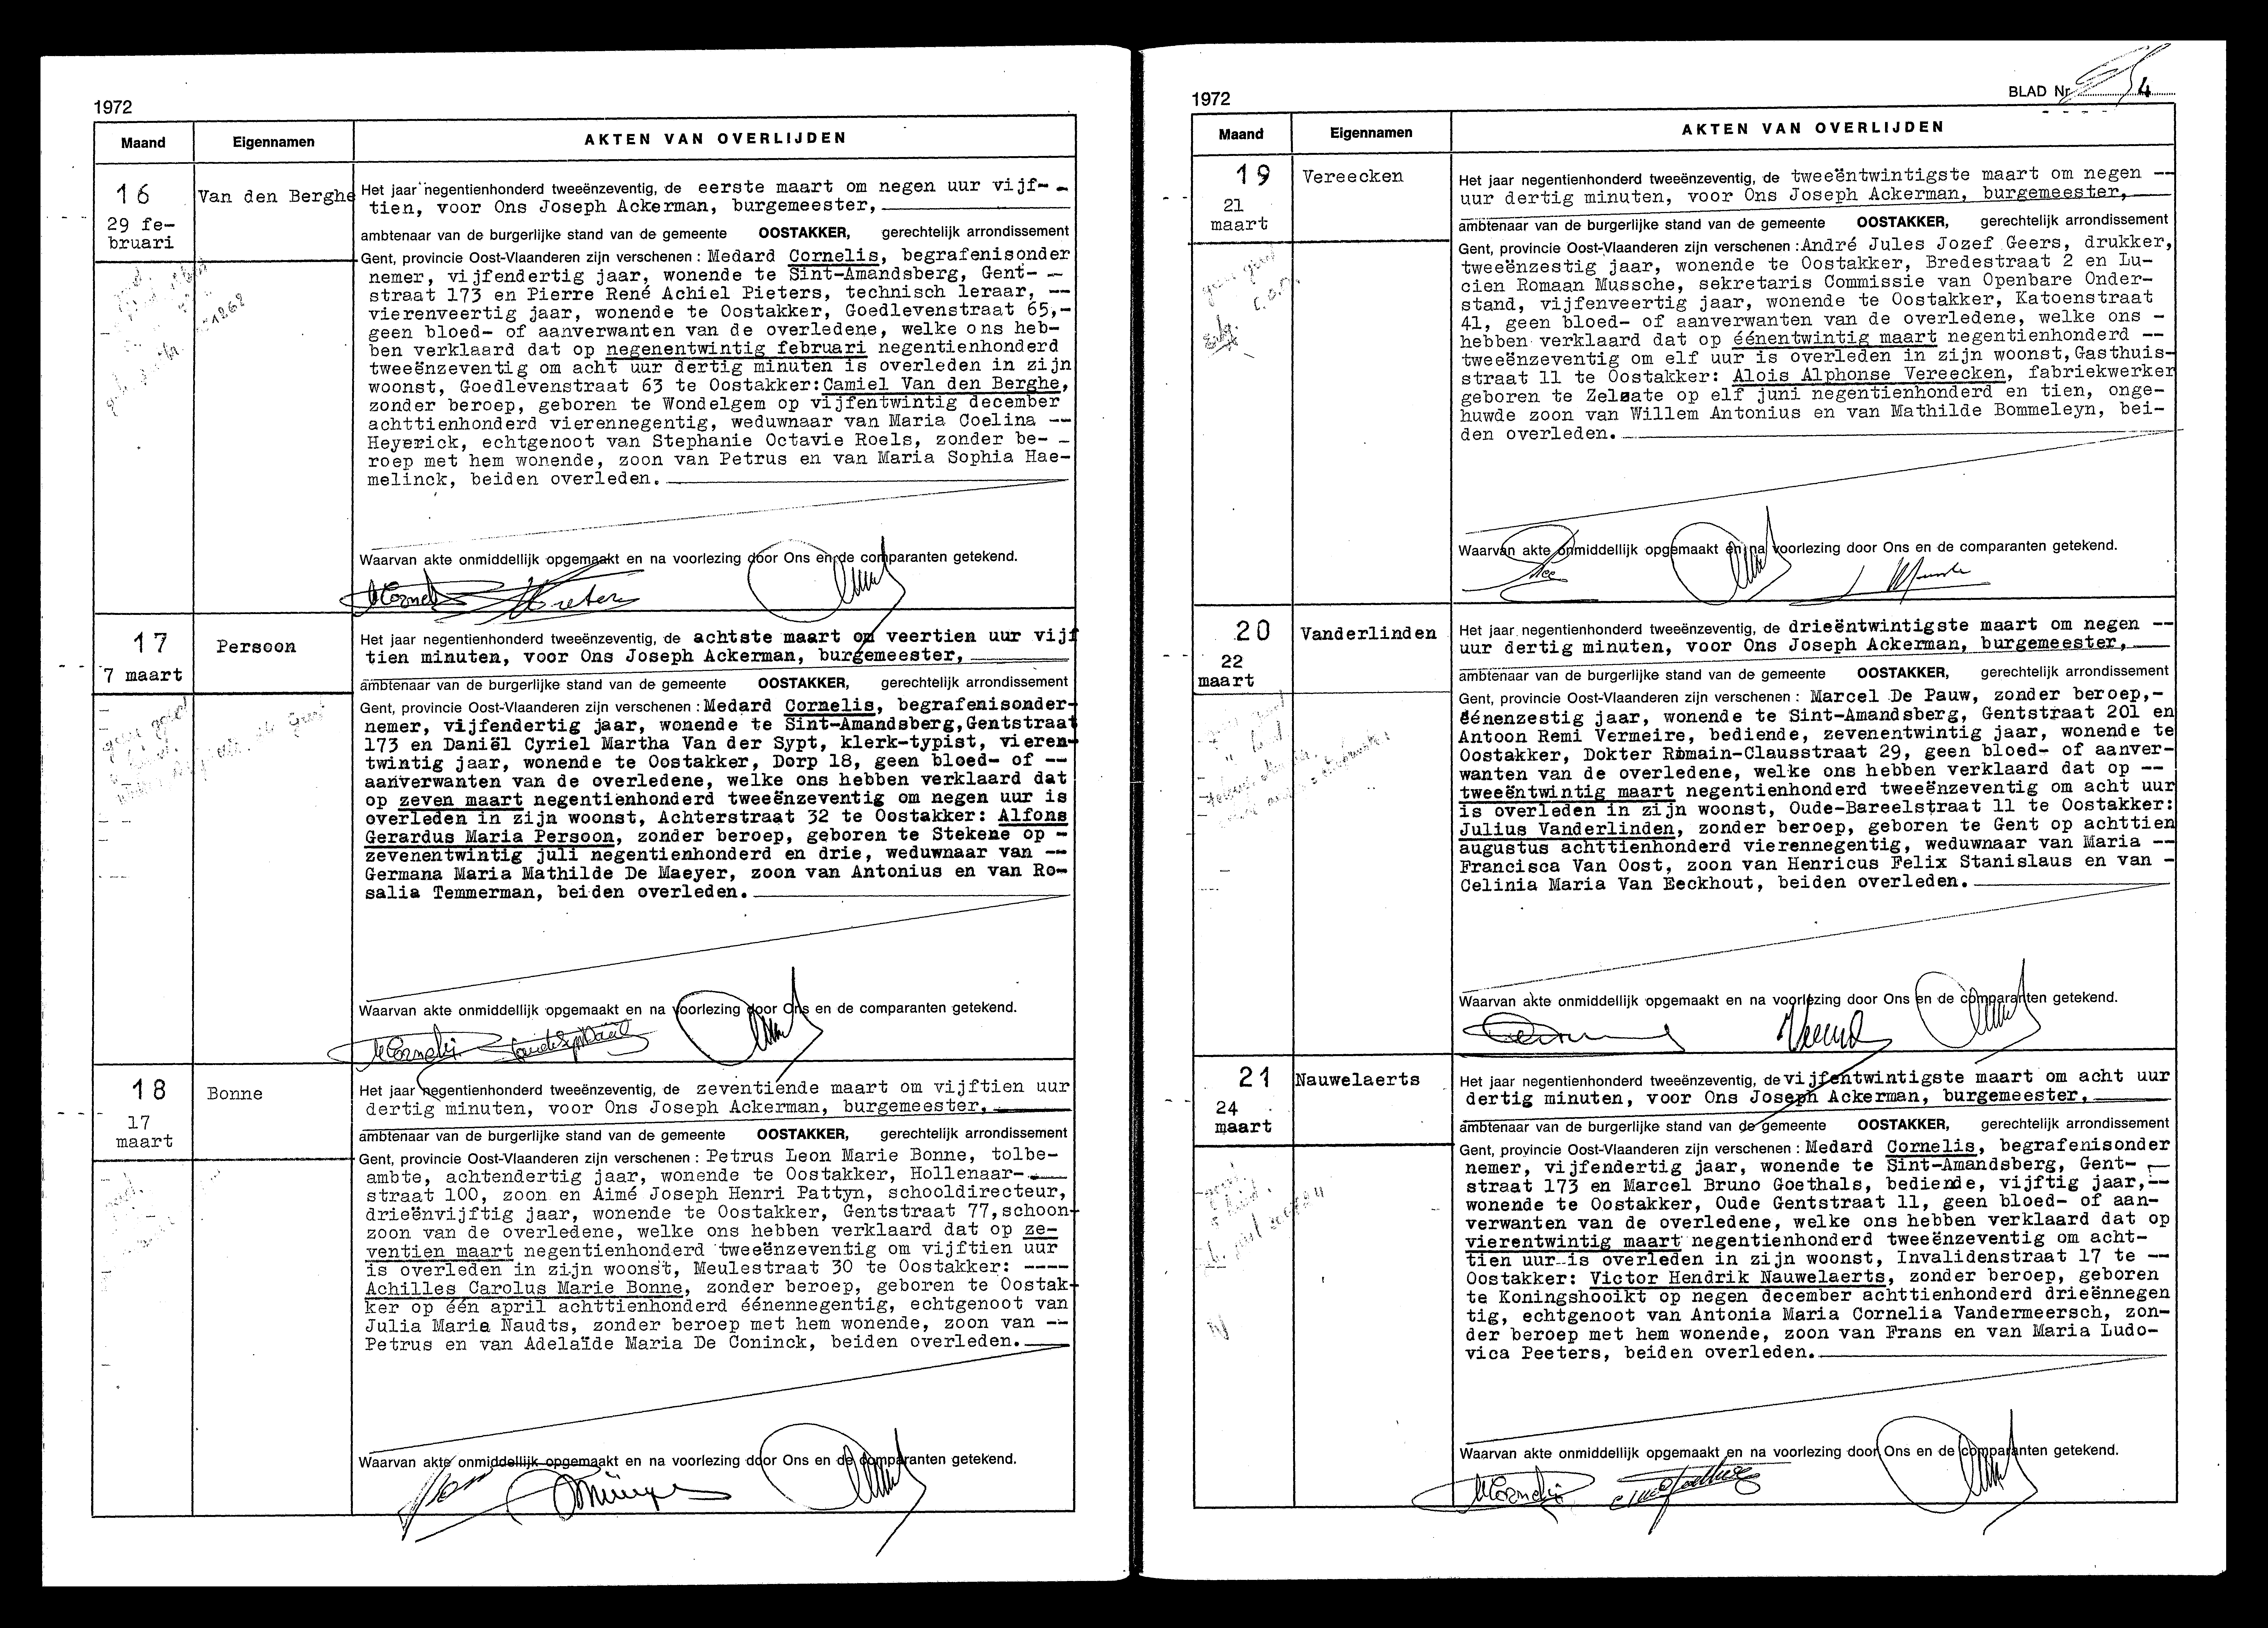 1972
Maand
Eigennamen
AKTEN VAN OVERLIJDEN
16
29 fe-
bruari
Van den Berghe
Het jaar negentienhonderd tweeënzeventig, de eerste maart om negen uur vijf-
tien, voor Ons Joseph Ackerman, burgemeester,
ambtenaar van de burgerlijke stand van de gemeente OOSTAKKER, gerechtelijk arrondissement
Gent, provincie Oost-Vlaanderen zijn verschenen : Medard Cornelis, begrafenisonder
nemer, vijfendertig jaar, wonende te Sint-Amandsberg, Gent- -
straat 173 en Pierre René Achiel Pieters, technisch leraar, --
vierenveertig jaar, wonende te Oostakker, Goedlevenstraat 65,-
geen bloed- of aanverwanten van de overledene, welke ons heb-
ben verklaard dat op negenentwintig februari negentienhonderd
tweeënzeventig om acht uur dertig minuten is overleden in zijn
woonst, Goedlevenstraat 63 te Oostakker: Camiel Van den Berghe,
zonder beroep, geboren te Wondelgem op vijfentwintig december
achttienhonderd vierennegentig, weduwnaar van Maria Coelina --
Heyerick, echtgenoot van Stephanie Octavie Roels, zonder be- -
roep met hem wonende, zoon van Petrus en van Maria Sophia Hae-
melinck, beiden overleden.
Waarvan akte onmiddellijk opgemaakt en na voorlezing door Ons en de comparanten getekend.
17
7 maart
Persoon
Het jaar negentienhonderd tweeënzeventig, de achtste maart om veertien uur vijf
tien minuten, voor Ons Joseph Ackerman, burgemeester,
ambtenaar van de burgerlijke stand van de gemeente OOSTAKKER, gerechtelijk arrondissement
Gent, provincie Oost-Vlaanderen zijn verschenen : Medard Cornelis, begrafenisonder-
nemer, vijfendertig jaar, wonende te Sint-Amandsberg, Gentstraat
173 en Daniël Cyriel Martha Van der Sypt, klerk-typist, vieren-
twintig jaar, wonende te Oostakker, Dorp 18, geen bloed- of --
aanverwanten van de overledene, welke ons hebben verklaard dat
op zeven maart negentienhonderd tweeënzeventig om negen uur is
overleden in zijn woonst, Achterstraat 32 te Oostakker: Alfons
Gerardus Maria Persoon, zonder beroep, geboren te Stekene op -
zevenentwintig juli negentienhonderd en drie, weduwnaar van --
Germana Maria Mathilde De Maeyer, zoon van Antonius en van Ro-
salia Temmerman, beiden overleden.
Waarvan akte onmiddellijk opgemaakt en na voorlezing door Ons en de comparanten getekend.
18
17
maart
Bonne
Het jaar negentienhonderd tweeënzeventig, de zeventiende maart om vijftien uur
dertig minuten, voor Ons Joseph Ackerman, burgemeester,
ambtenaar van de burgerlijke stand van de gemeente OOSTAKKER, gerechtelijk arrondissement
Gent, provincie Oost-Vlaanderen zijn verschenen : Petrus Leon Marie Bonne, tolbe-
ambte, achtendertig jaar, wonende te Oostakker, Hollenaar-
straat 100, zoon en Aimé Joseph Henri Pattyn, schooldirecteur,
drieënvijftig jaar, wonende te Oostakker, Gentstraat 77, schoon-
zoon van de overledene, welke ons hebben verklaard dat op ze-
ventien maart negentienhonderd tweeënzeventig om vijftien uur
is overleden in zijn woonst, Meulestraat 30 te Oostakker: ----
Achilles Carolus Marie Bonne, zonder beroep, geboren te Oostak-
ker op één april achttienhonderd éénennegentig, echtgenoot van
Julia Maria Naudts, zonder beroep met hem wonende, zoon van --
Petrus en van Adelaïde Maria De Coninck, beiden overleden.
Waarvan akte onmiddellijk opgemaakt en na voorlezing door Ons en de comparanten getekend.
1972
BLAD Nr 4
Maand
Eigennamen
AKTEN VAN OVERLIJDEN
19
21
maart
Vereecken
Het jaar negentienhonderd tweeënzeventig, de tweeëntwintigste maart om negen --
uur dertig minuten, voor Ons Joseph Ackerman, burgemeester,
ambtenaar van de burgerlijke stand van de gemeente OOSTAKKER, gerechtelijk arrondissement
Gent, provincie Oost-Vlaanderen zijn verschenen : André Jules Jozef Geers, drukker,
tweeënzestig jaar, wonende te Oostakker, Bredestraat 2 en Lu-
cien Romaan Mussche, sekretaris Commissie van Openbare Onder-
stand, vijfenveertig jaar, wonende te Oostakker, Katoenstraat
41, geen bloed- of aanverwanten van de overledene, welke ons -
hebben verklaard dat op éénentwintig maart negentienhonderd --
tweeënzeventig om elf uur is overleden in zijn woonst, Gasthuis-
straat 11 te Oostakker: Alois Alphonse Vereecken, fabriekwerker
geboren te Zelzate op elf juni negentienhonderd en tien, onge-
huwde zoon van Willem Antonius en van Mathilde Bommeleyn, bei-
den overleden.
Waarvan akte onmiddellijk opgemaakt en na voorlezing door Ons en de comparanten getekend.
20
22
maart
Vanderlinden
Het jaar negentienhonderd tweeënzeventig, de drieëntwintigste maart om negen --
uur dertig minuten, voor Ons Joseph Ackerman, burgemeester,
ambtenaar van de burgerlijke stand van de gemeente OOSTAKKER, gerechtelijk arrondissement
Gent, provincie Oost-Vlaanderen zijn verschenen : Marcel De Pauw, zonder beroep,-
éénenzestig jaar, wonende te Sint-Amandsberg, Gentstraat 201 en
Antoon Remi Vermeire, bediende, zevenentwintig jaar, wonende te
Oostakker, Dokter Romain-Clausstraat 29, geen bloed- of aanver-
wanten van de overledene, welke ons hebben verklaard dat op --
tweeëntwintig maart negentienhonderd tweeënzeventig om acht uur
is overleden in zijn woonst, Oude-Bareelstraat 11 te Oostakker:
Julius Vanderlinden, zonder beroep, geboren te Gent op achttien
augustus achttienhonderd vierennegentig, weduwnaar van Maria --
Francisca Van Oost, zoon van Henricus Felix Stanislaus en van -
Celinia Maria Van Eeckhout, beiden overleden.
Waarvan akte onmiddellijk opgemaakt en na voorlezing door Ons en de comparanten getekend.
21
24
maart
Nauwelaerts
Het jaar negentienhonderd tweeënzeventig, de vijfentwintigste maart om acht uur
dertig minuten, voor Ons Joseph Ackerman, burgemeester,
ambtenaar van de burgerlijke stand van de gemeente OOSTAKKER, gerechtelijk arrondissement
Gent, provincie Oost-Vlaanderen zijn verschenen : Medard Cornelis, begrafenisonder
nemer, vijfendertig jaar, wonende te Sint-Amandsberg, Gent- -
straat 173 en Marcel Bruno Goethals, bediende, vijftig jaar,--
wonende te Oostakker, Oude Gentstraat 11, geen bloed- of aan-
verwanten van de overledene, welke ons hebben verklaard dat op
vierentwintig maart negentienhonderd tweeënzeventig om acht-
tien uur is overleden in zijn woonst, Invalidenstraat 17 te --
Oostakker: Victor Hendrik Nauwelaerts, zonder beroep, geboren
te Koningshooikt op negen december achttienhonderd drieënnegen
tig, echtgenoot van Antonia Maria Cornelia Vandermeersch, zon-
der beroep met hem wonende, zoon van Frans en van Maria Ludo-
vica Peeters, beiden overleden.
Waarvan akte onmiddellijk opgemaakt en na voorlezing door Ons en de comparanten getekend.